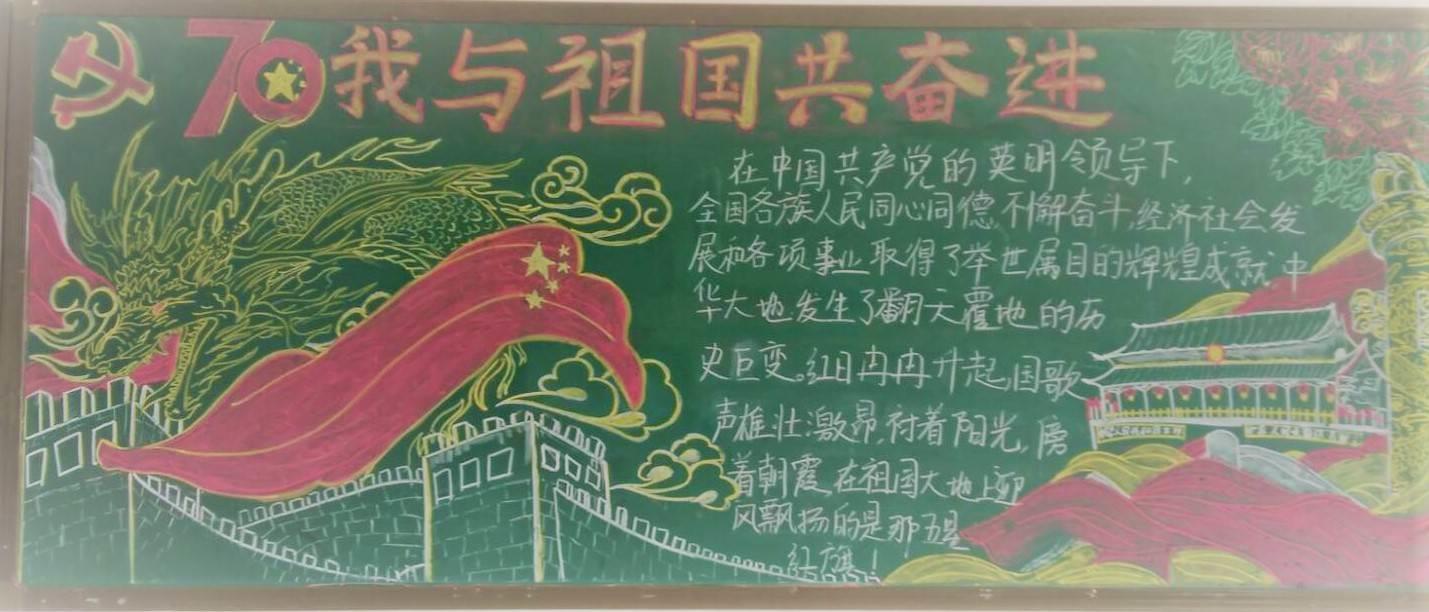 70 我与祖国共奋进
在中国共产党的英明领导下,
全国各族人民同心同德,不懈奋斗,经济社会发
展和各项事业取得了举世属目的辉煌成就,中
华大地发生了翻天覆地的历
史巨变。红日冉冉升起,国歌
声雄壮激昂,衬着阳光,傍
着朝霞,在祖国大地上迎
风飘扬的是那五星
红旗!